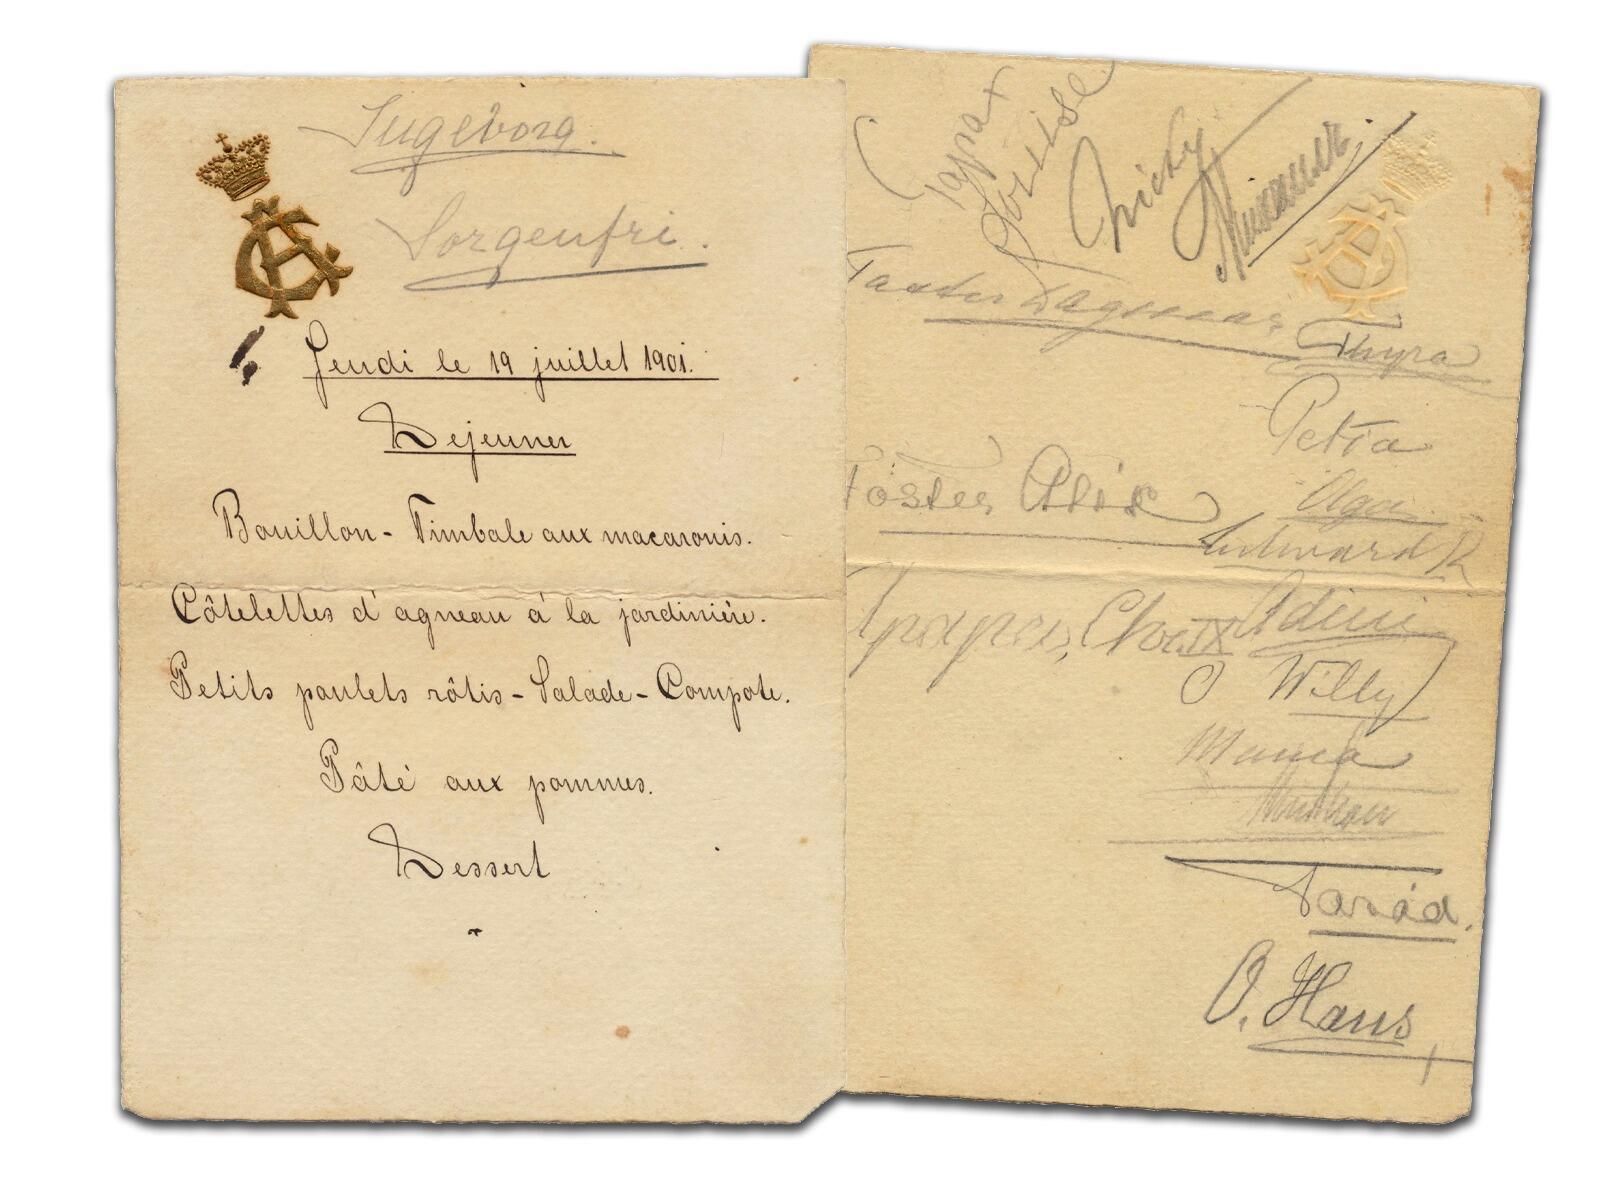 Ingeborg.
Sorgenfri.
Jeudi le 19 juillet 1901.
Dejeuner
Bouillon - Timbale aux macaronis.
Côtelettes d'agneau à la jardinière.
Petits poulets rôtis - Salade - Compote.
Pâté aux pommes.
Dessert
Louise
Nicky
Михаилъ
Dagmar
Thyra
Petia
Olga
Faster Alix
Edward R
Apapa, Chr. IX
Adini
O Willy
Waldemar
O. Hans